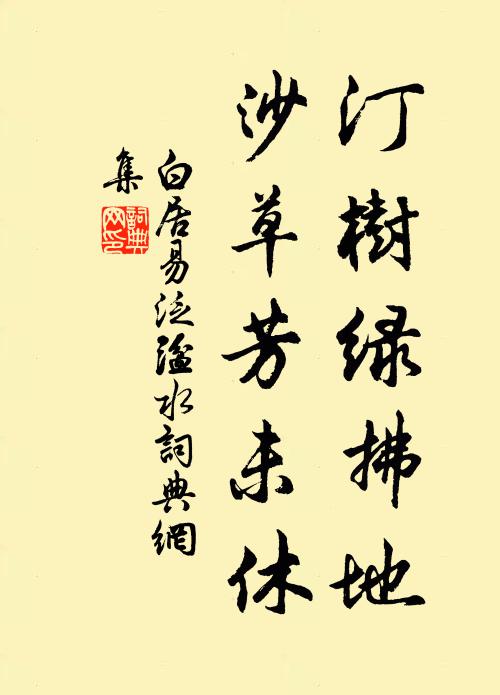 汀樹緑拂地
沙草芳未休
白居易泛湓水詞典網
集
詞典网印